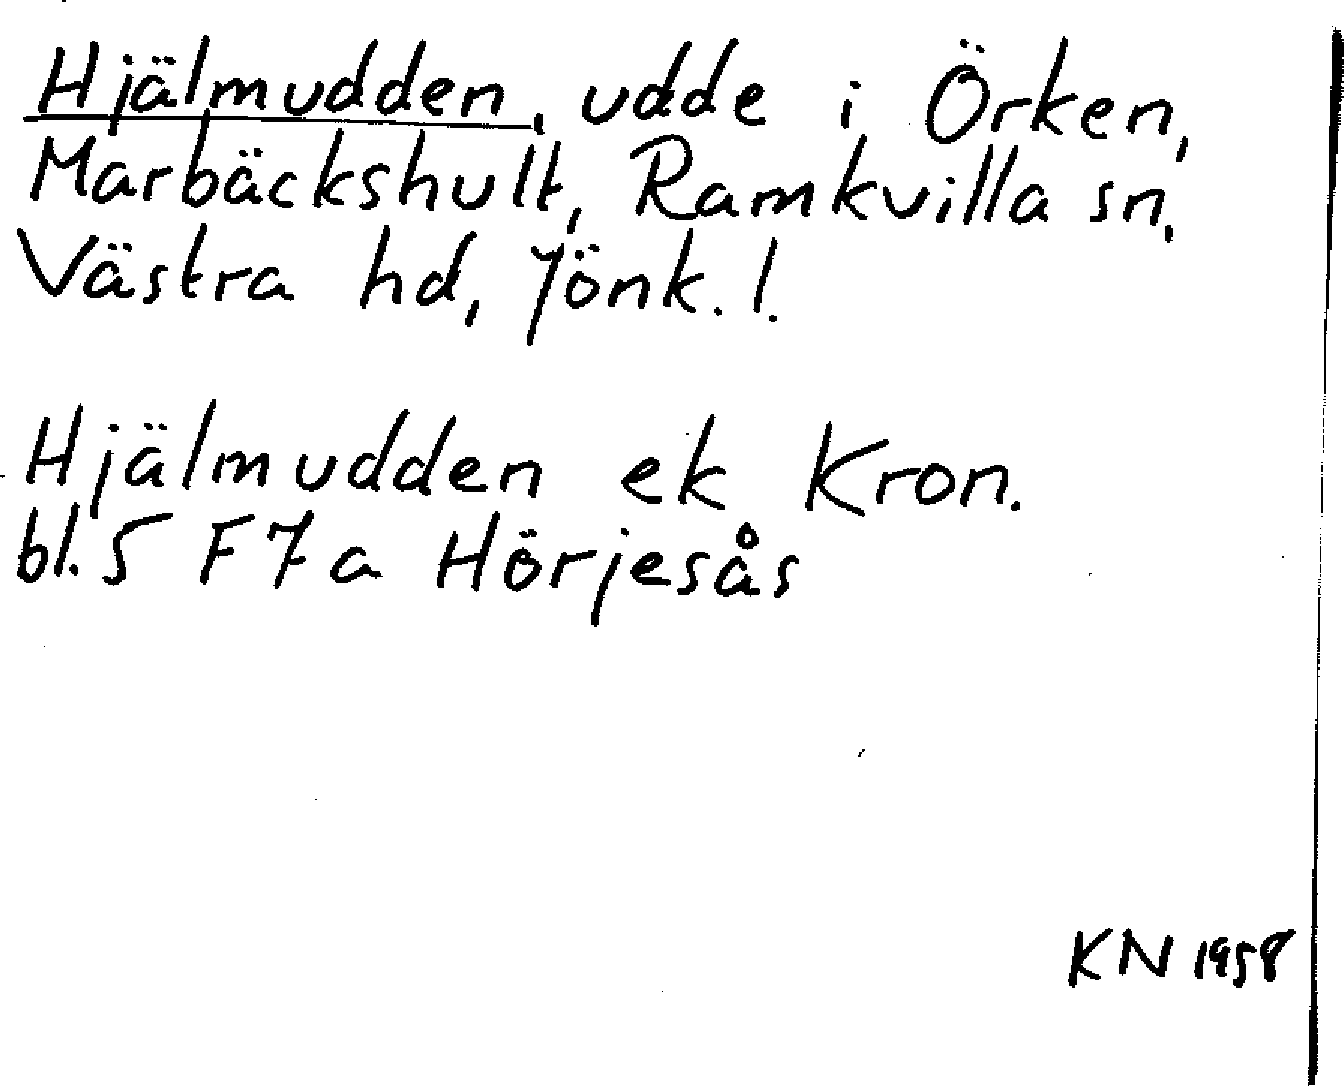 Hjälmudden, udde i Örken,
Marbäckshult, Ramkvilla sn,
Västra hd, Jönk. l.
Hjälmudden ek Kron.
bl. 5 F 7 a Hörjesås
KN 1958